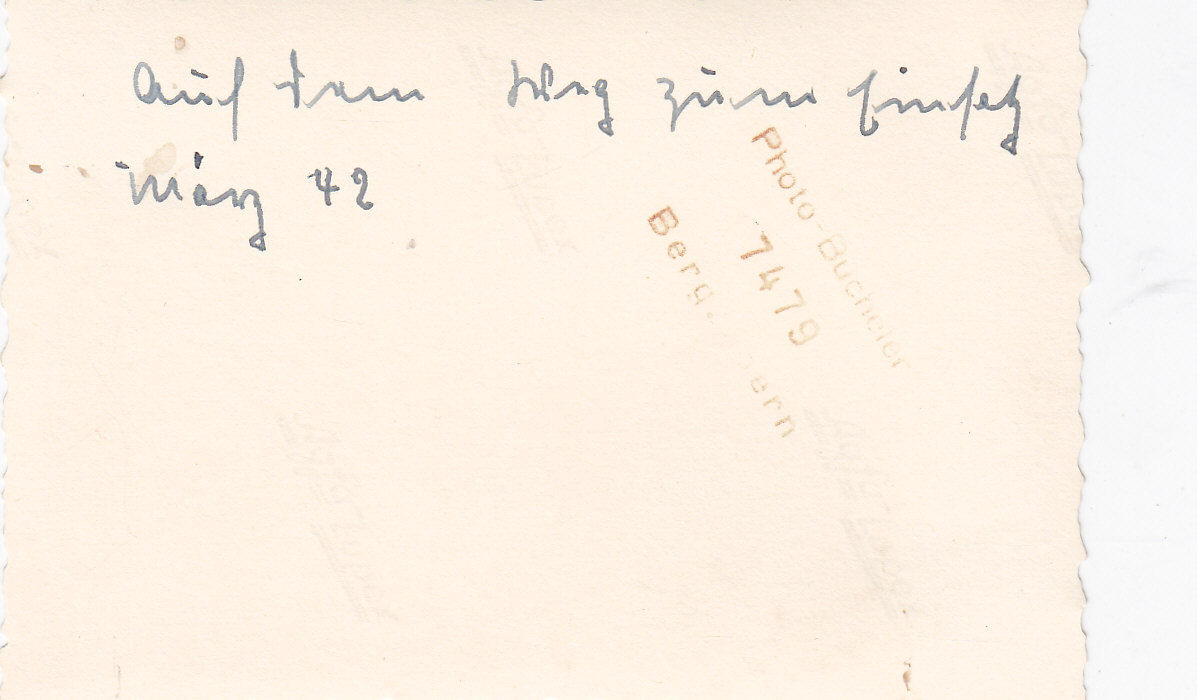 Auf dem Weg zum Einsatz
März 42
Photo-Bucheler
7479
Berg. ern